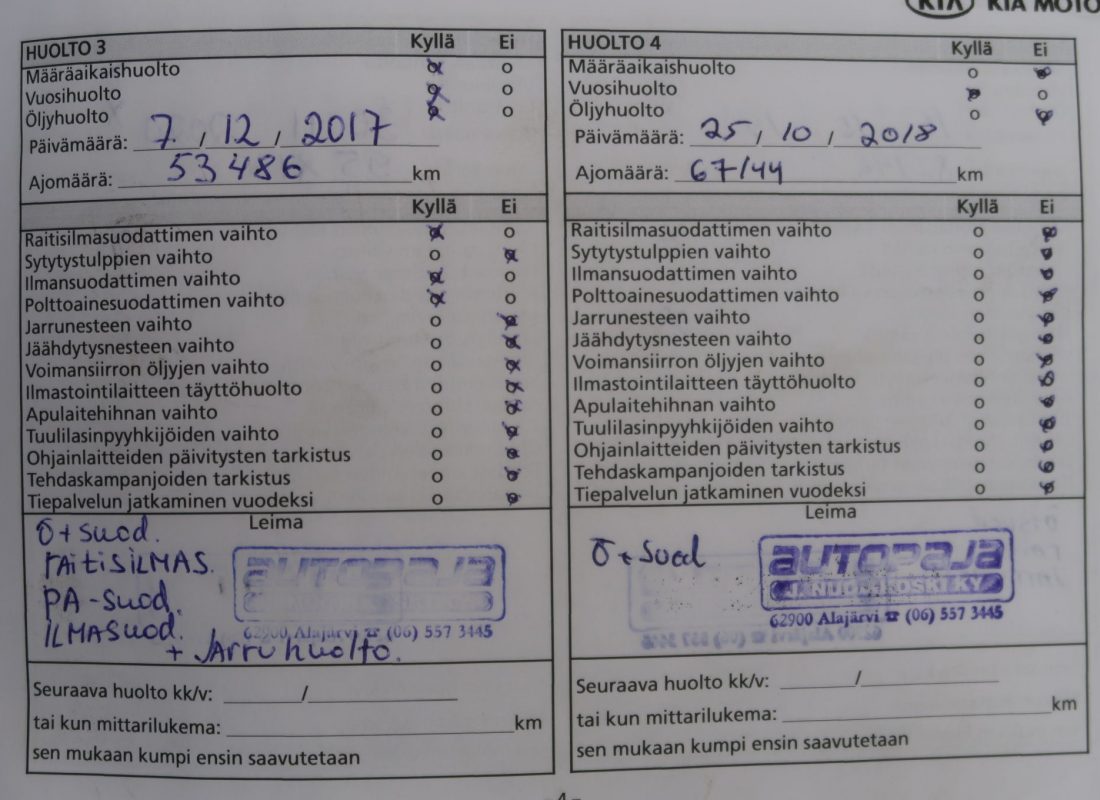 KIA KIA MOTO
HUOLTO 3 Kyllä Ei
Määräaikaishuolto o o
Vuosihuolto o o
Öljyhuolto o o
Päivämäärä: 7 / 12 / 2017
Ajomäärä: 53486 km
Kyllä Ei
Raitisilmasuodattimen vaihto o o
Sytytystulppien vaihto o o
Ilmansuodattimen vaihto o o
Polttoainesuodattimen vaihto o o
Jarrunesteen vaihto o o
Jäähdytysnesteen vaihto o o
Voimansiirron öljyjen vaihto o o
Ilmastointilaitteen täyttöhuolto o o
Apulaitehihnan vaihto o o
Tuulilasinpyyhkijöiden vaihto o o
Ohjainlaitteiden päivitysten tarkistus o o
Tehdaskampanjoiden tarkistus o o
Tiepalvelun jatkaminen vuodeksi o o
Leima
Ö+suod.
RAitiSiLMAS.
PA-suod.
iLMAsuod.
+ JArruhuolto.
AUTOPAJA
62900 Alajärvi ☎ (06) 557 3445
Seuraava huolto kk/v: /
tai kun mittarilukema: km
sen mukaan kumpi ensin saavutetaan
HUOLTO 4 Kyllä Ei
Määräaikaishuolto o o
Vuosihuolto o o
Öljyhuolto o o
Päivämäärä: 25 / 10 / 2018
Ajomäärä: 67144 km
Kyllä Ei
Raitisilmasuodattimen vaihto o o
Sytytystulppien vaihto o o
Ilmansuodattimen vaihto o o
Polttoainesuodattimen vaihto o o
Jarrunesteen vaihto o o
Jäähdytysnesteen vaihto o o
Voimansiirron öljyjen vaihto o o
Ilmastointilaitteen täyttöhuolto o o
Apulaitehihnan vaihto o o
Tuulilasinpyyhkijöiden vaihto o o
Ohjainlaitteiden päivitysten tarkistus o o
Tehdaskampanjoiden tarkistus o o
Tiepalvelun jatkaminen vuodeksi o o
Leima
Ö+Suod
AUTOPAJA
62900 Alajärvi ☎ (06) 557 3445
Seuraava huolto kk/v: /
tai kun mittarilukema: km
sen mukaan kumpi ensin saavutetaan